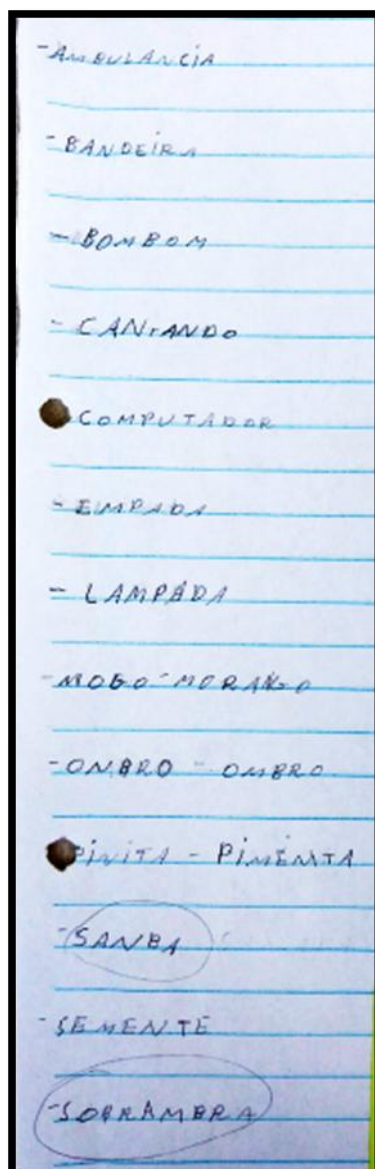 - AMBULANCIA
- BANDEIRA
- BOMBOM
- CANTANDO
COMPUTADOR
- EMPADA
- LAMPÁDA
- MOGO - MORANGO
- ONBRO - OMBRO
PINITA - PIMENTA
- SANBA
- SEMENTE
- SOBRAMBRA